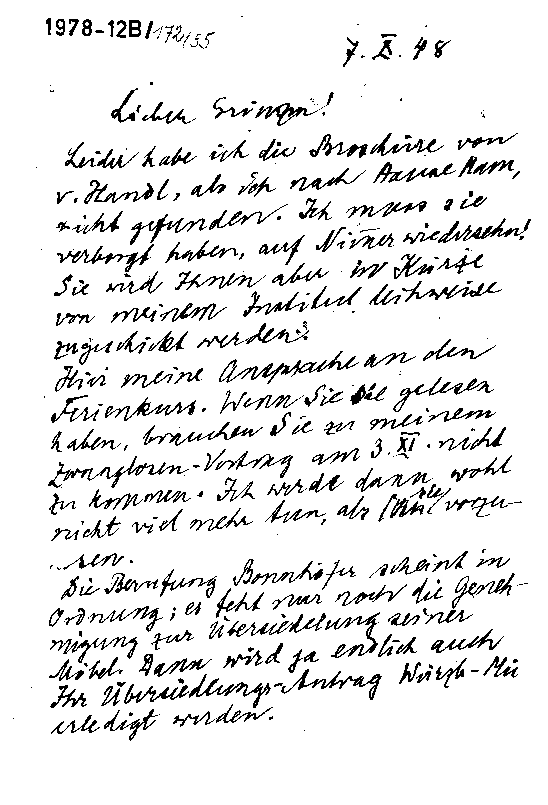 1978-12B/172/55
7. X. 48
Lieber Grimm!
Leider habe ich die Broschüre von
v. Handl, als ich nach Hause kam,
nicht gefunden. Ich muss sie
verborgt haben, auf Nimmerwiedersehn!
Sie wird Ihnen aber in Kürze
von meinem Institut leihweise
zugeschickt werden.
Hier meine Ansprache an den
Ferienkurs. Wenn Sie sie gelesen
haben, brauchen Sie zu meinem
zwanglosen-Vortrag am 3. XI. nicht
zu kommen. Ich werde dann wohl
nicht viel mehr tun, als sie vorzu-
sen.
Die Berufung Bonnhöfer scheint in
Ordnung; es fehlt nur noch die Geneh-
migung zur Übersiedelung seiner
Möbel. Dann wird ja endlich auch
Ihr Übersiedlungs-Antrag Würzb-Mü
erledigt werden.